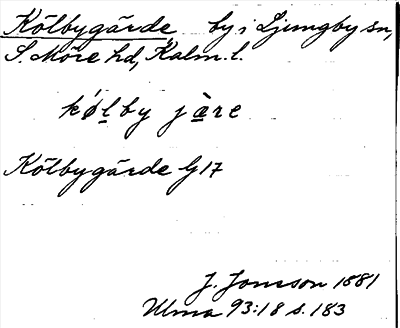 Kölbygärde by i Ljungby sn,
S. Möre hd, Kalm. l.
kǿlby jàre
Kölbygärde G 17
J. Jonsson 1881
Ulma 93:18 s. 183